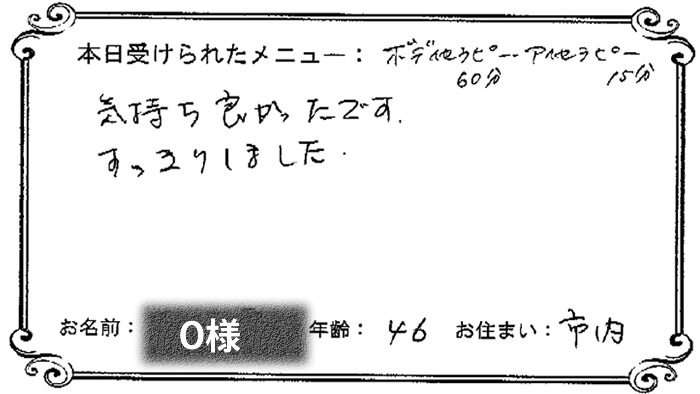 本日受けられたメニュー： ボディセラピー・アイセラピー
60分 15分
気持ち良かったです.
すっきりしました.
お名前： O様 年齢： 46 お住まい： 市内